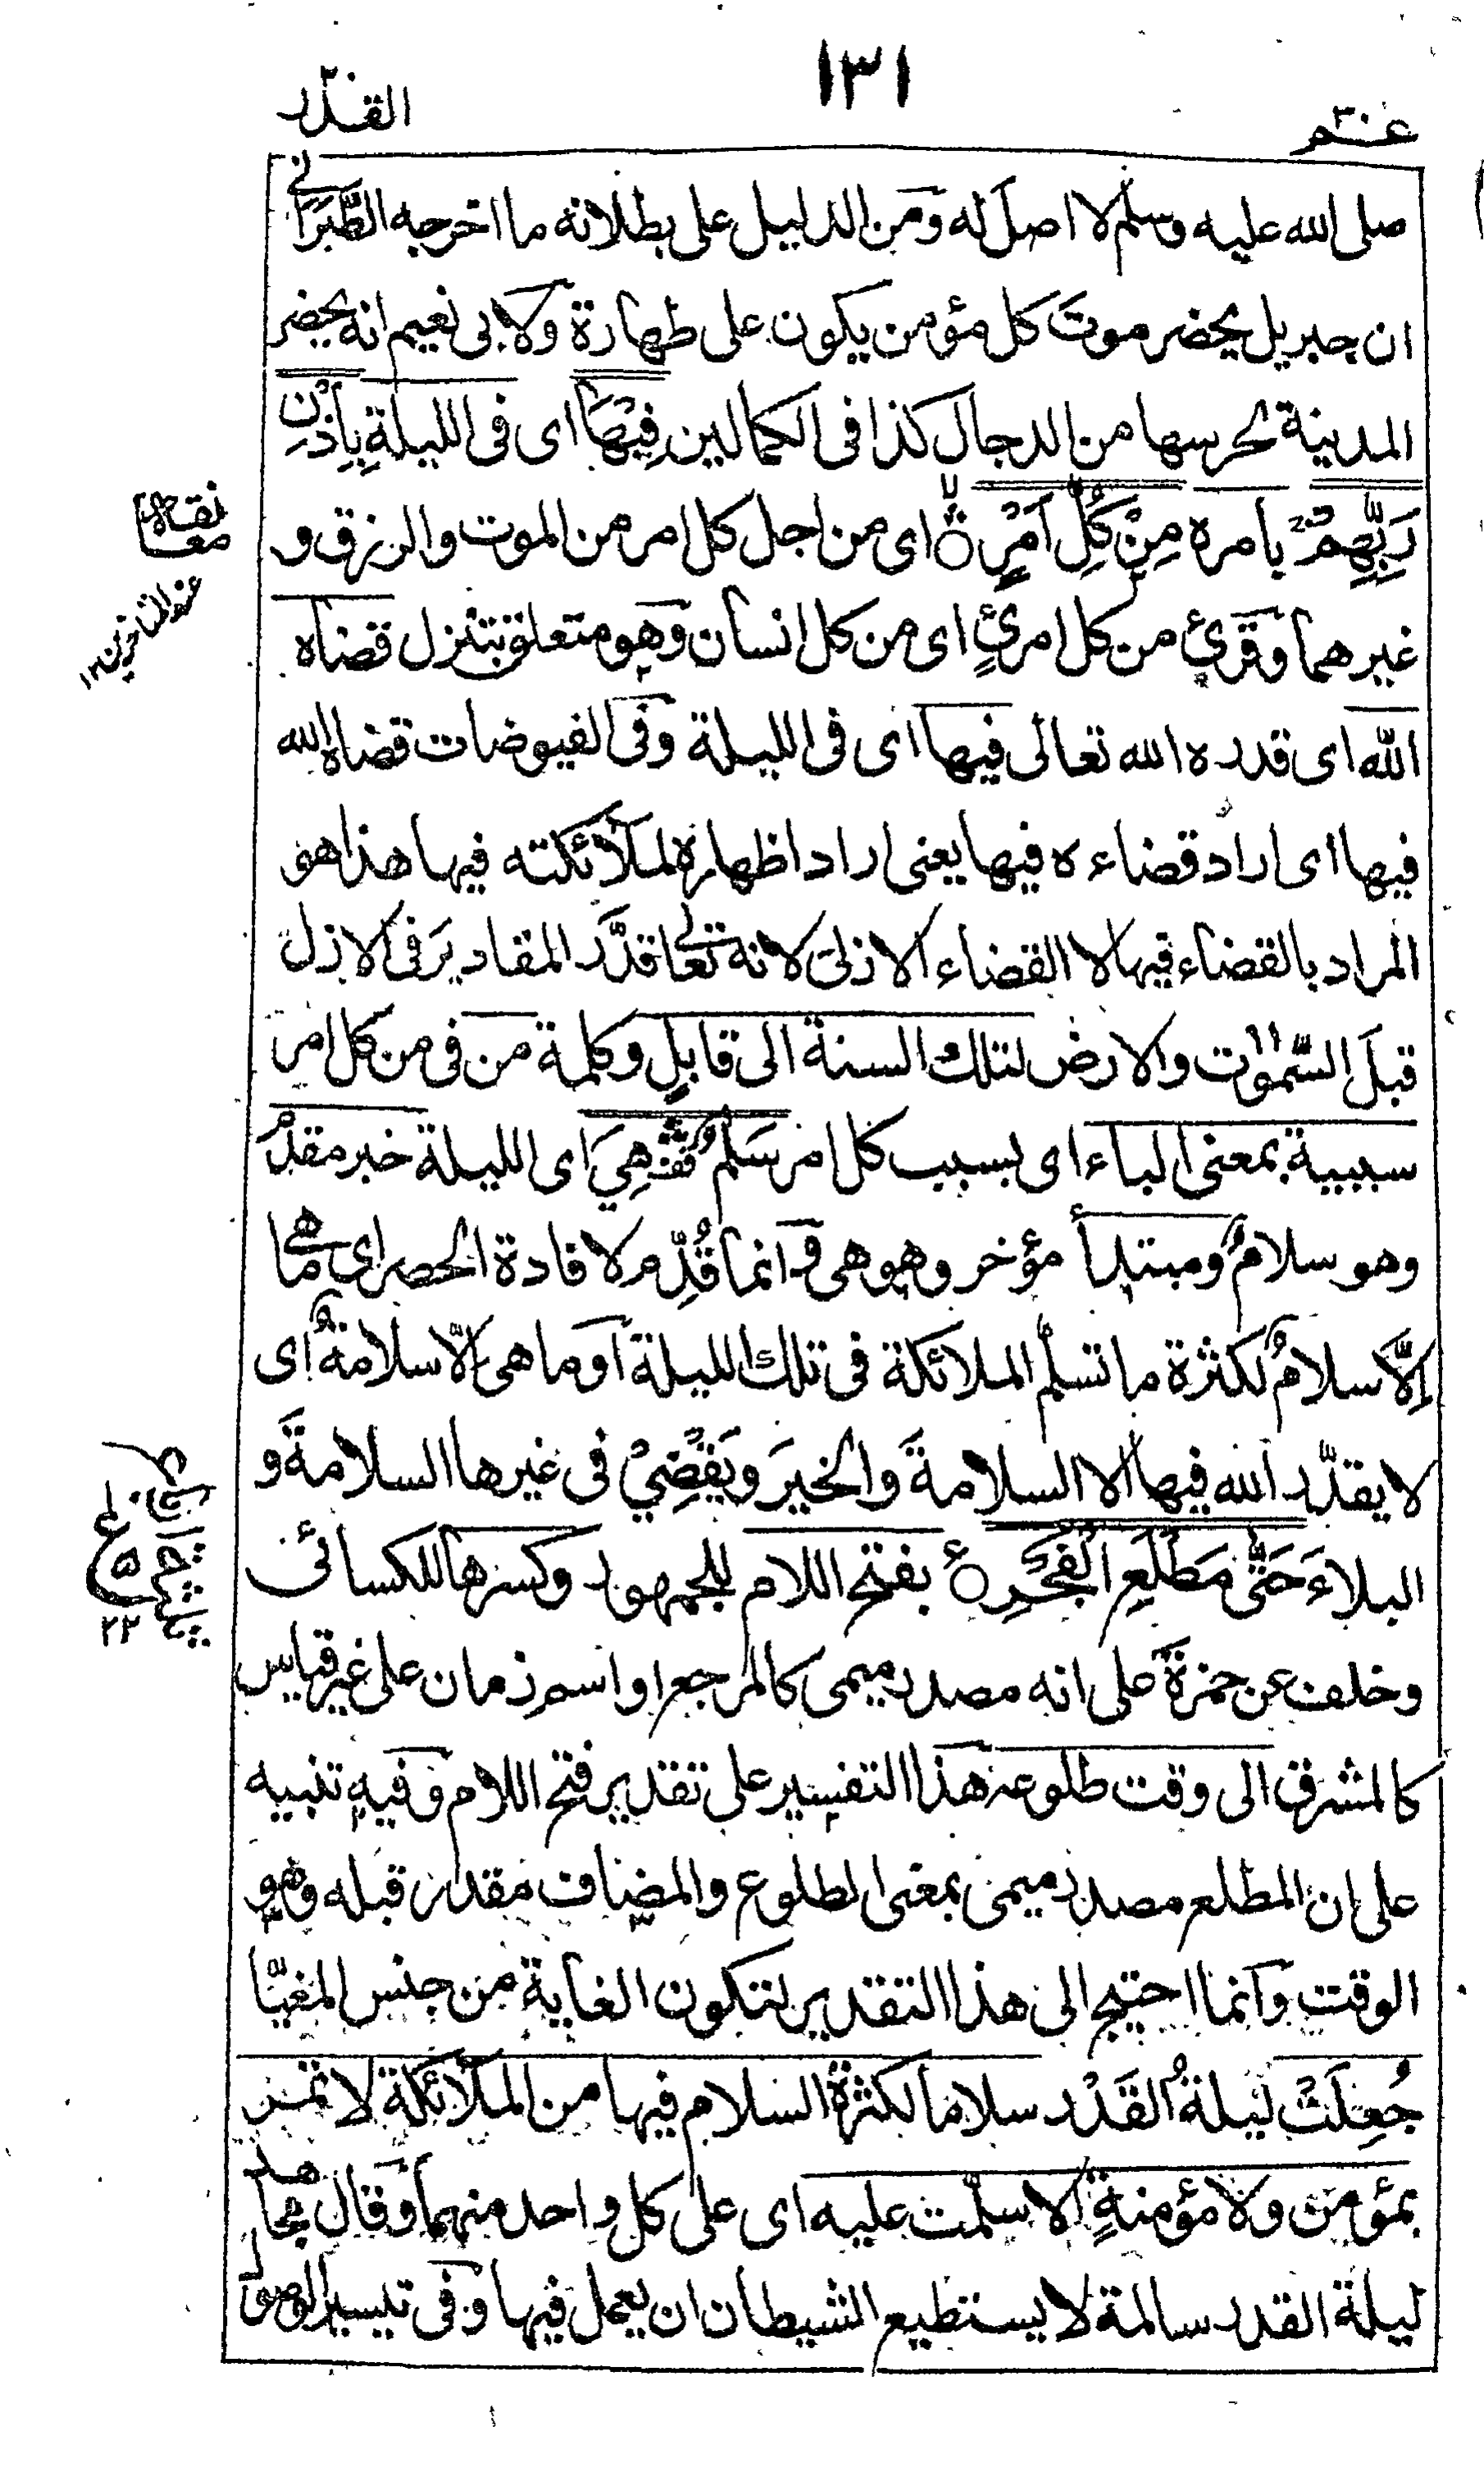 ١٣١
عم ٣٠
القدر
صلى الله عليه وسلم لا اصل له ومن الدليل على بطلانه ما اخرجه الطَّبَرَانی
ان جبريل يحضر موت كل مؤمن يكون على طهارة ولابى نعيم انه يحضر
المدينة يحرسها من الدجال كذا فى الكمالين فِيْهَا اى فى الليلة بِاِذْنِ
رَبِّهِمْ بأمره مِنْ كُلِّ اَمْرٍ ۙ اى من اجل كل امر من الموت والرزق و
غيرهما وقرئ من كل امرئٍ اى من كل انسان وهو متعلق بتنزل قضاه
الله اى قدره الله تعالى فيها اى فى الليلة وفى الفيوضات قضاه الله
فيها اى اراد قضاءه فيها يعنى اراد اظهاره لملائكته فيها هذا هو
المراد بالقضاء فيها لا القضاء الازلى لانه تعالى قدَّر المقادير فى الازل
قبل السمٰوٰت والارض لتلك السنة الى قابلٍ وكلمة من فى من كل امر
سببية بمعنى الباء اى بسبب كل امر سَلٰمٌ هِيَ اى الليلة خبر مقدم
وهو سلامٌ ومبتدأ مؤخر وهو هى وانما قُدِّم لافادة الحصر اى ما هى
اِلّا سلامٌ لكثرة ما تسلّم الملائكة فى تلك الليلة او ما هى الّا سلامة اى
لا يقدّر الله فيها الا السلامة والخيرَ ويَقْضِيْ فى غيرها السلامةَ و
البلاءَ حَتّٰى مَطْلَعِ الْفَجْرِ ۝ بفتح اللام للجمهور وكسرها للكسائى
وخلف عن حمزة على انه مصدر ميمى كالمرجع او اسم زمان على غير قياس
كالمشرق الى وقت طلوعه هذا التفسير على تقدير فتح اللام وفيه تنبيه
على ان المطلع مصدر ميمى بمعنى الطلوع والمضاف مقدر قبله وهو
الوقت وانما احتيج الى هذا التقدير لتكون الغاية من جنس المغيّا
جُعِلَتْ ليلةُ القَدْر سلاما لكثرة السلام فيها من الملائكة لا تمر
بمؤمن ولا مؤمنةٍ الا سلّمت عليه اى على كل واحد منهما وقال مجاهد
ليلة القدر سالمة لا يستطيع الشيطان ان يعمل فيها وفى تيسير الوصول
معانقة
عند المتاخرين ١٢
ع
٥
٢٢